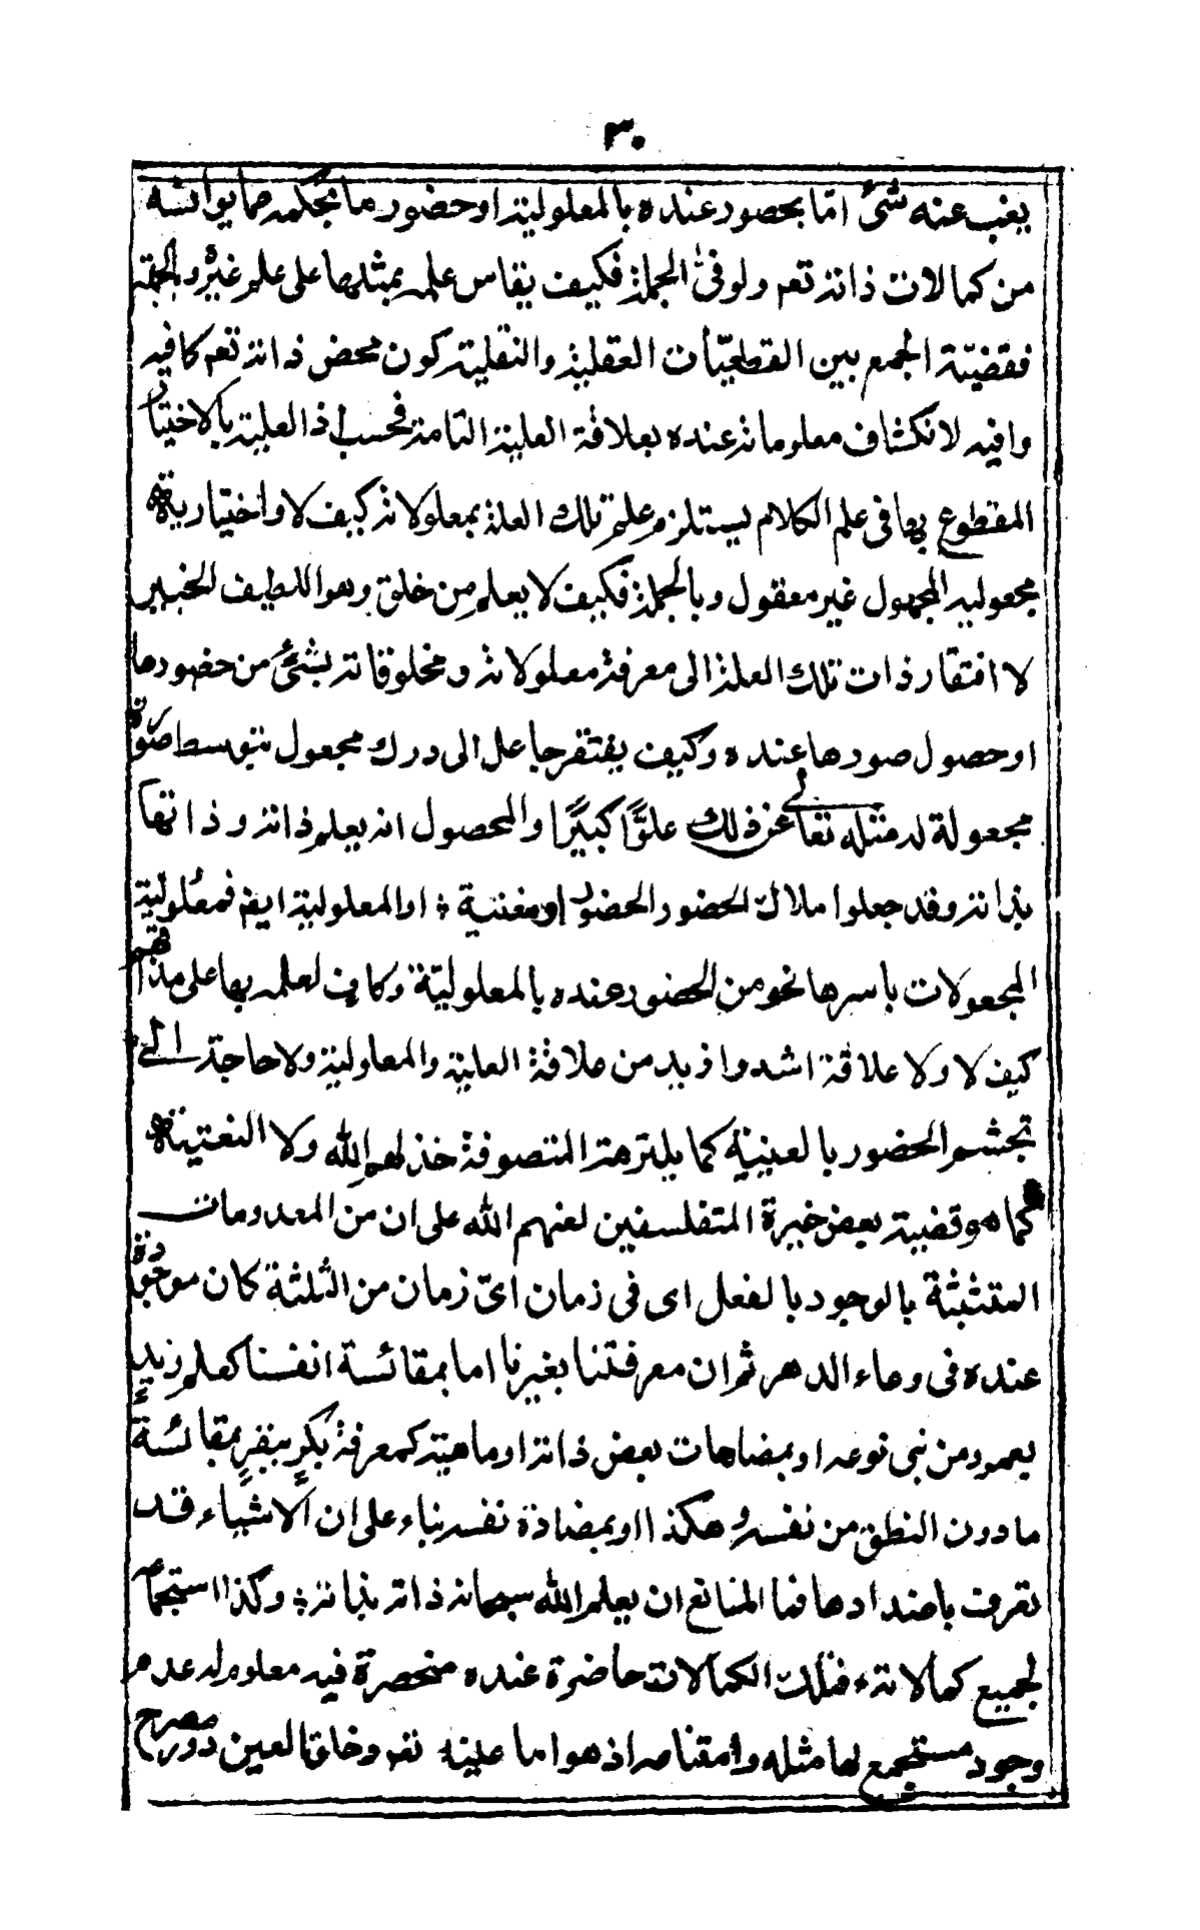 ٣٠
يغب عنه شئ اما بحضور عنده بالمعلولية او حضور ما بحكمه مما يوانسه
من كمالات ذاته تعم ولو فى الجملة فكيف يقاس علمه بمثلها على علم غيره وبالجملة
فقضيّة الجمع بين القطعيّات العقلية والنقلية كون محض ذاته تعم كافيه
وافيه لانكشاف معلوماته عنده بعلاقة العلية التامة فحسب اذ العلية بالاختيار
المقطوع بها فى علم الكلام يستلزم علم تلك العلة بمعلولاته كيف لا واختيارية
مجعوليه المجهول غير معقول وبالجملة فكيف لا يعلم من خلق وهو اللطيف الخبير
لا افتقار ذات تلك العلة الى معرفة معلولاته ومخلوقاته بشئ من حضورها
او حصول صورها عنده وكيف يفتقر جاعل الى درك مجعول بتوسط صورة
مجعولة له مثله تعالى عن ذلك علوًّا كبيرًا والمحصول انه يعلم ذاته وذاتها
بذاته وقد جعلوا ملاك الحضور الحضور او مغنية او المعلولية ايضا فمعلولية
المجعولات باسرها نحو من الحضور عنده بالمعلوليّة وكاف لعلمه بها على مذاقهم
كيف لا ولا علاقة اشد وازيد من علاقة العلية والمعلولية ولا حاجة الى
تجشم الحضور بالعينية كما يلتزمه المتصوفة خذلهم الله ولا النعتية
كما هو قضية بعض خيرة المتفلسفين لعنهم الله على ان من المعدومات
المتشبثة بالوجود بالفعل اى فى زمان اىّ زمان من الثلثة كان موجودة
عنده فى وعاء الدهر ثم ان معرفتنا بغيرنا اما بمقائسة انفسنا كعلم زيد
بعمرو من بنى نوعه او بمضاهات بعض ذاته او ماهيته كمعرفة بكر بفرس بمقائسة
ما دون النطق من نفسه وهكذا او بمضادة نفسه بناء على ان الاشياء قد
تعرف باضدادها فما المانع ان يعلم الله سبحانه ذاته بذاته وكذا استجماعه
لجميع كمالاته فتلك الكمالات حاضرة عنده منحصرة فيه معلوم له عدم
وجود مستجمع لها مثله وامتناعه اذ هو اما علينه تعم وخلق العين دور مصرح